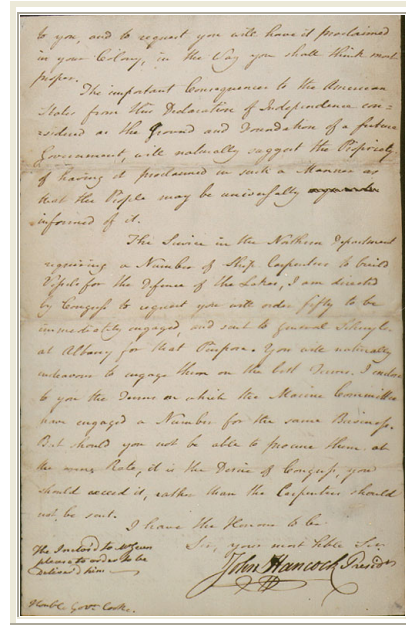 to you, and to request you will have it proclaimed
in your Colony, in the Way you shall think most
proper.
The important Consequences to the American
States from this Declaration of Independence con=
sidered as the Ground and Foundation of a future
Government, will naturally suggest the Propriety
of having it proclaimed in such a Manner as
that the People may be universally
informed of it.
The Service in the Northern Department
requiring a Number of Ship Carpenters to build
Vessels for the Defence of the Lakes, I am directed
by Congress to request you will order fifty to be
immediately engaged, and sent to General Schuyler
at Albany for that Purpose. You will naturally
endeavour to engage them on the best Terms. I enclose
to you the Terms on which the Marine Committee
have engaged a Number for the same Business.
But should you not be able to procure them at
the same Rate, it is the Desire of Congress you
should exceed it, rather than the Carpenters should
not be sent.
I have the Honour to be
Sir, your most hble Ser.
John Hancock Presidt
The Inclos'd to
please to order to be
deliver'd him
Honble Govr. Cooke.